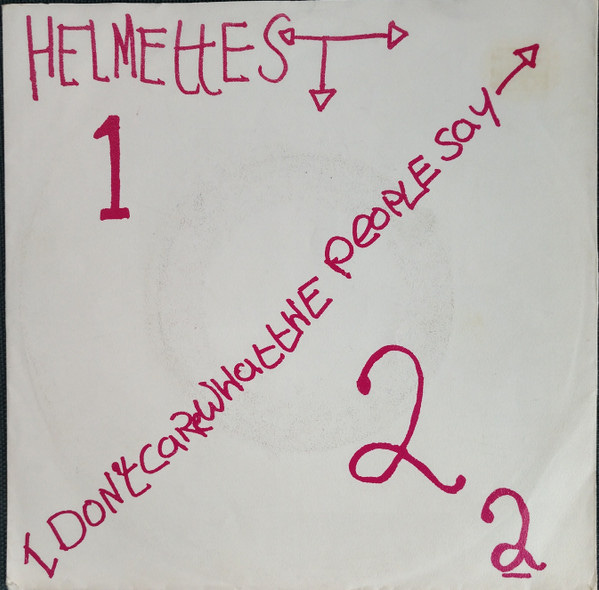 HELMEttES
1
I DON't CARE WHAt tHE PEOPLE SAY
2
2